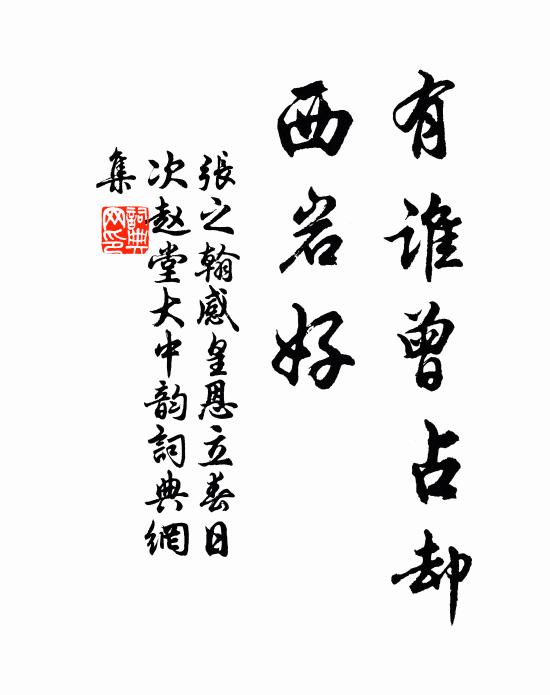 有谁曾占却
西岩好
張之翰感皇恩立春日
次赵堂大中韵詞典網
集
詞典
网印